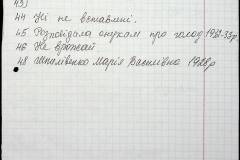 43)
44 Ні не вставлні.
45 Розповідала онукам про голод 1932-33р
46 Не врожай
48 Шпалівенко Марія Василівна 1928р